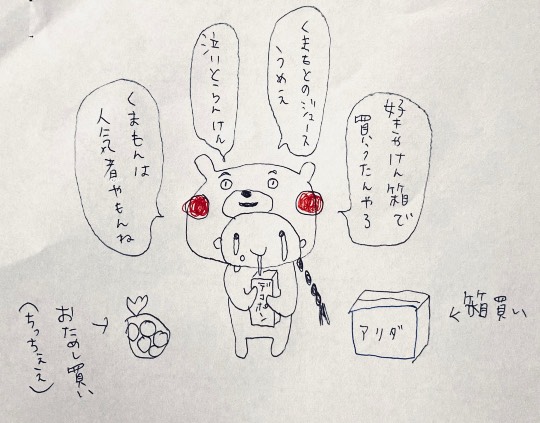 好きやけん箱で
買うたんやろ
くまもとのジュース
うめえ
泣いとらんけん
くまもんは
人気者やもんね
デコポン
アリダ
箱買い
おためし買い
(ちっちぇえ)